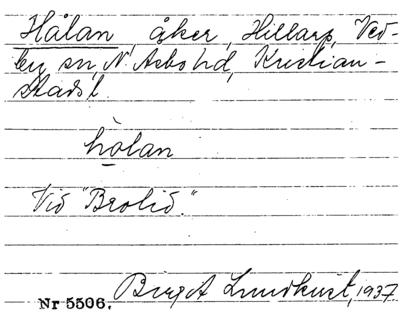 Hålan, åker, Hillarp, Ved-
by sn, N. Åsbo hd, Kristian-
stads l.
hòlan
Vid "Brolid."
Birgit Lundkvist, 1937
Nr 5506.